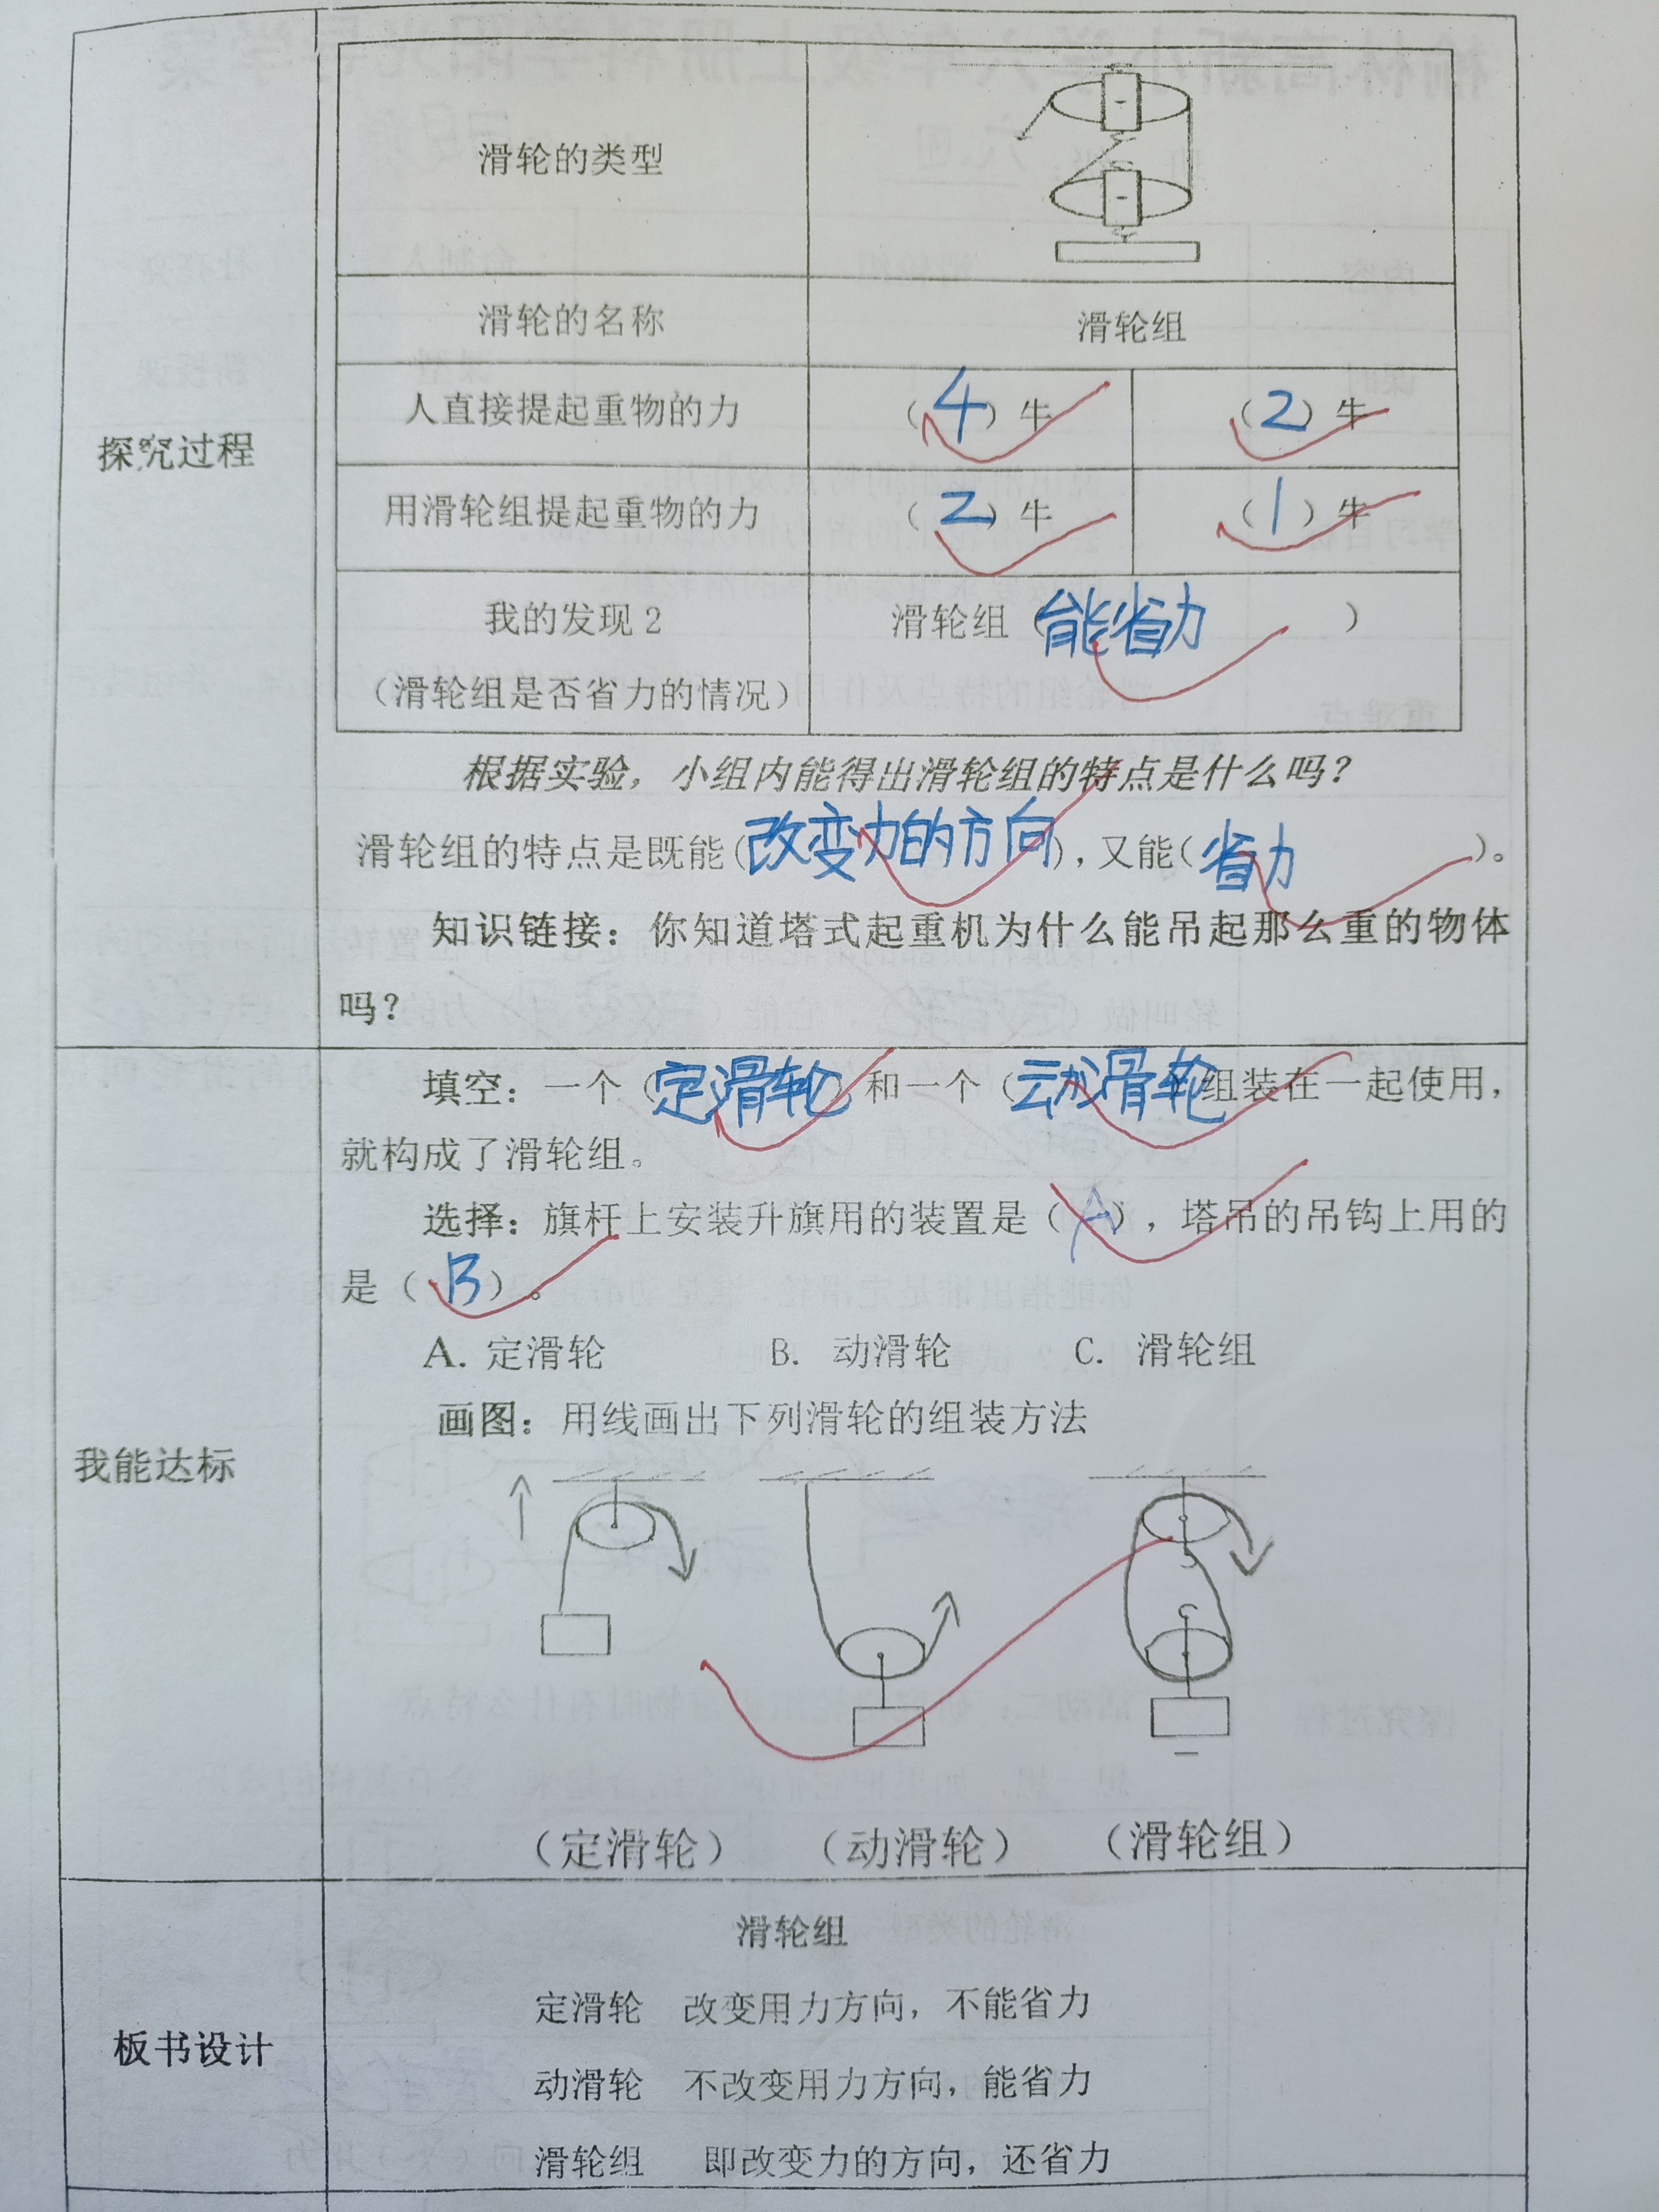 探究过程
滑轮的类型
滑轮的名称 滑轮组
人直接提起重物的力 （4）牛 （2）牛
用滑轮组提起重物的力 （2）牛 （1）牛
我的发现2
（滑轮组是否省力的情况） 滑轮组（能省力）
根据实验，小组内能得出滑轮组的特点是什么吗？
滑轮组的特点是既能（改变力的方向），又能（省力）。
知识链接：你知道塔式起重机为什么能吊起那么重的物体
吗？
我能达标
填空：一个（定滑轮）和一个（动滑轮）组装在一起使用，
就构成了滑轮组。
选择：旗杆上安装升旗用的装置是（A），塔吊的吊钩上用的
是（B）。
A. 定滑轮 B. 动滑轮 C. 滑轮组
画图：用线画出下列滑轮的组装方法
（定滑轮） （动滑轮） （滑轮组）
板书设计
滑轮组
定滑轮 改变用力方向，不能省力
动滑轮 不改变用力方向，能省力
滑轮组 即改变力的方向，还省力